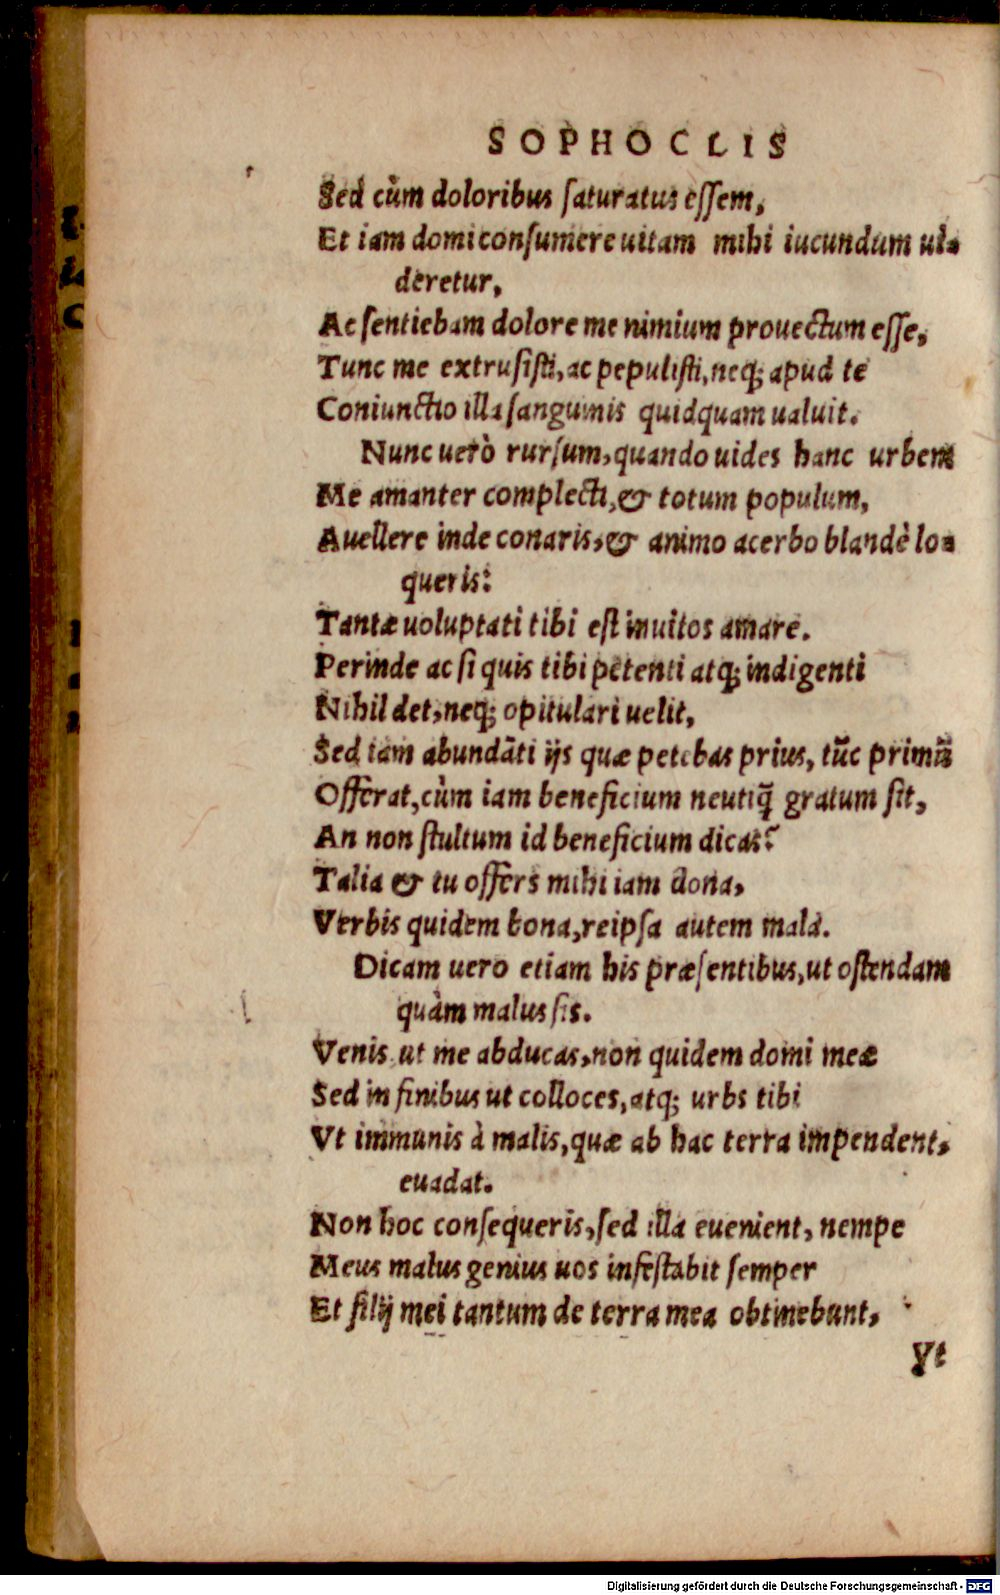 SOPHOCLIS
Sed cùm doloribus ſaturatus eſſem,
Et iam domi conſumere uitam mihi iucundum ui⸗
deretur,
Ac ſentiebam dolore me nimium prouectum eſſe,
Tunc me extruſiſti, ac pepuliſti, neq; apud te
Coniunctio illa ſanguinis quidquam ualuit.
Nunc uerò rurſum, quando uides hanc urbem
Me amanter complecti, & totum populum,
Auellere inde conaris, & animo acerbo blandè lo⸗
queris:
Tantæ uoluptati tibi eſt inuitos amare.
Perinde ac ſi quis tibi petenti atq; indigenti
Nihil det, neq; opitulari uelit,
Sed iam abundāti ijs quæ petebas prius, tūc primū
Offerat, cùm iam beneficium neutiq̃ gratum ſit,
An non ſtultum id beneficium dicas?
Talia & tu offers mihi iam dona,
Verbis quidem bona, reipſa autem mala.
Dicam uero etiam his præſentibus, ut oſtendam
quàm malus ſis.
Venis ut me abducas, non quidem domi meæ
Sed in finibus ut colloces, atq; urbs tibi
Vt immunis à malis, quæ ab hac terra impendent,
euadat.
Non hoc conſequeris, ſed illa euenient, nempe
Meus malus genius uos infeſtabit ſemper
Et filij mei tantum de terra mea obtinebunt,
Vt
Digitalisierung gefördert durch die Deutsche Forschungsgemeinschaft - DFG